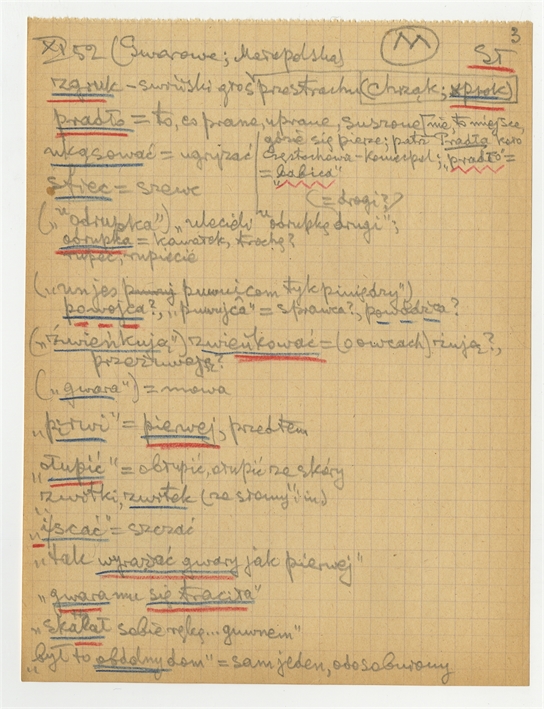 3
XI 52 (Gwarowe; Małopolska) M Sł
zgruk – świński głos przestrachu (chrząk; kprok)
pradło = to, co prane, uprane, suszone
nie, to miejsce, gdzie się pierze; patrz Pradła koło
Częstochowa-Koniecpol; „pradło" =
= „babica"
ukąsować = ugryzać
sfiec = szewc
(= drogi?)
(„odrupka") „ulecieli odrupkę drogi";
odrupka = kawałek, trochę?
rupeć, rupiecie
powojca?, „puwojca" = sprawca?, powódźca?
(„zwieńkują") zwieńkować = (o owcach) żują?,
przeżuwają?
(„gwara") = mowa
„pirwi" = pierwej, przedtem
„otupić" = obłupić, ołupić ze skóry
zwitki, zwitek (ze słomy i in.)
„iscać" = szczać
„tak wyrażać gwary jak pierwej"
„gwara mu się traciła"
„skalał sobie rękę... guwnem"
„był to obdolny dom" = sam jeden, odosobniony